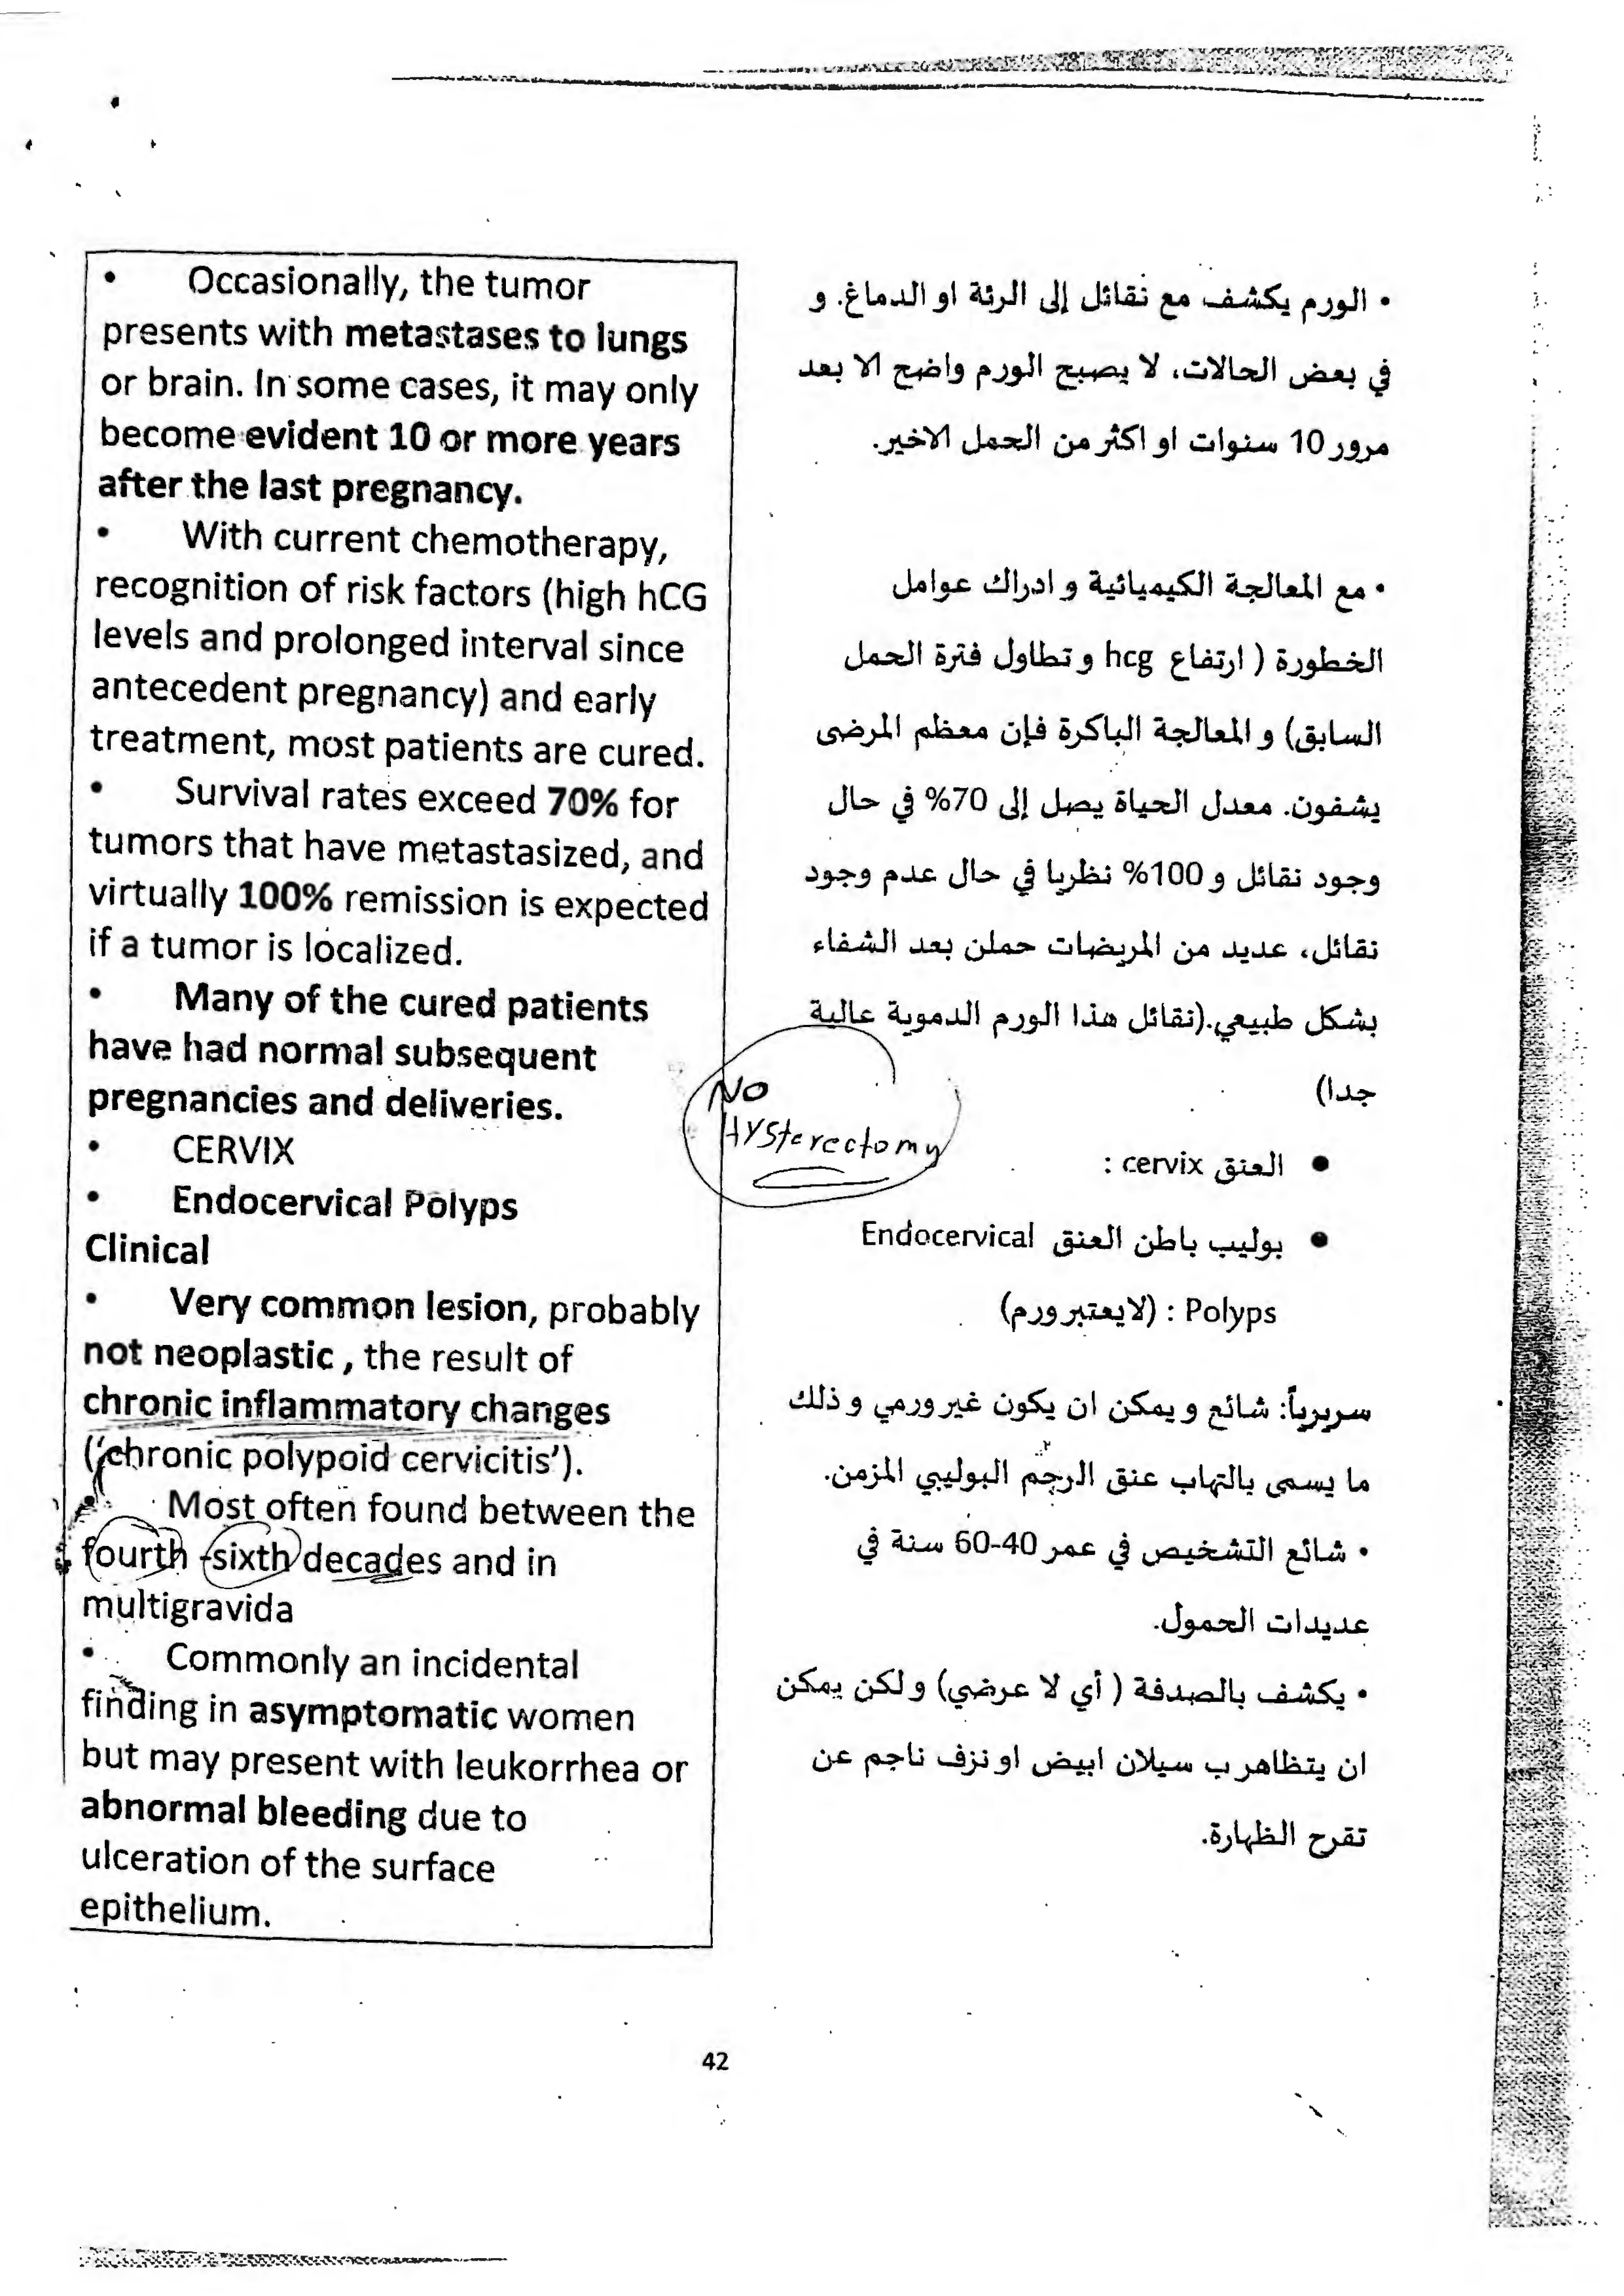 • Occasionally, the tumor
presents with metastases to lungs
or brain. In some cases, it may only
become evident 10 or more years
after the last pregnancy.
• With current chemotherapy,
recognition of risk factors (high hCG
levels and prolonged interval since
antecedent pregnancy) and early
treatment, most patients are cured.
• Survival rates exceed 70% for
tumors that have metastasized, and
virtually 100% remission is expected
if a tumor is localized.
• Many of the cured patients
have had normal subsequent
pregnancies and deliveries.
• CERVIX
• Endocervical Polyps
Clinical
• Very common lesion, probably
not neoplastic , the result of
chronic inflammatory changes
(‘chronic polypoid cervicitis’).
• Most often found between the
fourth -sixth decades and in
multigravida
• Commonly an incidental
finding in asymptomatic women
but may present with leukorrhea or
abnormal bleeding due to
ulceration of the surface
epithelium.
NO
HYSterectomy
• الورم يكشف مع نقائل إلى الرئة او الدماغ. و
في بعض الحالات، لا يصبح الورم واضح الا بعد
مرور 10 سنوات او اكثر من الحمل الاخير.
• مع المعالجة الكيميائية و ادراك عوامل
الخطورة ( ارتفاع hcg و تطاول فترة الحمل
السابق) و المعالجة الباكرة فإن معظم المرضى
يشفون. معدل الحياة يصل إلى 70% في حال
وجود نقائل و 100% نظريا في حال عدم وجود
نقائل، عديد من المريضات حملن بعد الشفاء
بشكل طبيعي.(نقائل هذا الورم الدموية عالية
جدا)
● العنق cervix :
● بوليب باطن العنق Endocervical
Polyps : (لايعتبر ورم)
سريرياً: شائع و يمكن ان يكون غير ورمي و ذلك
ما يسمى بالتهاب عنق الرحم البوليبي المزمن.
• شائع التشخيص في عمر 40-60 سنة في
عديدات الحمول.
• يكشف بالصدفة ( أي لا عرضي) و لكن يمكن
ان يتظاهر ب سيلان ابيض او نزف ناجم عن
تقرح الظهارة.
42